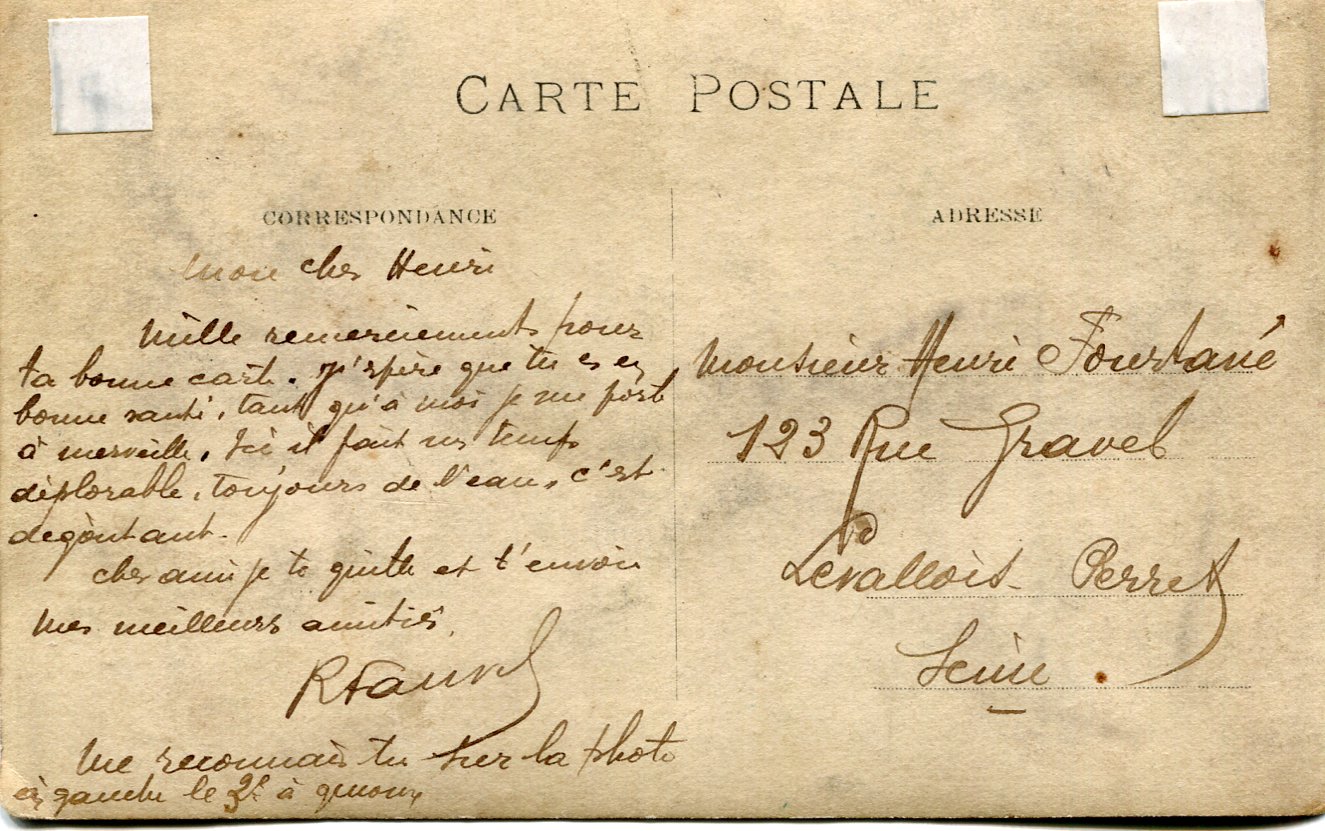 CARTE POSTALE
CORRESPONDANCE
Mon cher Henri
Mille remerciements pour
ta bonne carte. J'espère que tu es en
bonne santé, tant qu'à moi je me porte
à merveille. Ici il fait un temps
déplorable, toujours de l'eau, c'est
degôutant.
cher ami je te quitte et t'envoie
mes meilleures amitiés.
Me reconnais tu sur la photo
à gauche le 2e à genoux
ADRESSE
Monsieur Henri Fourtané
123 Rue Gravel
Levallois-Perret
Seine